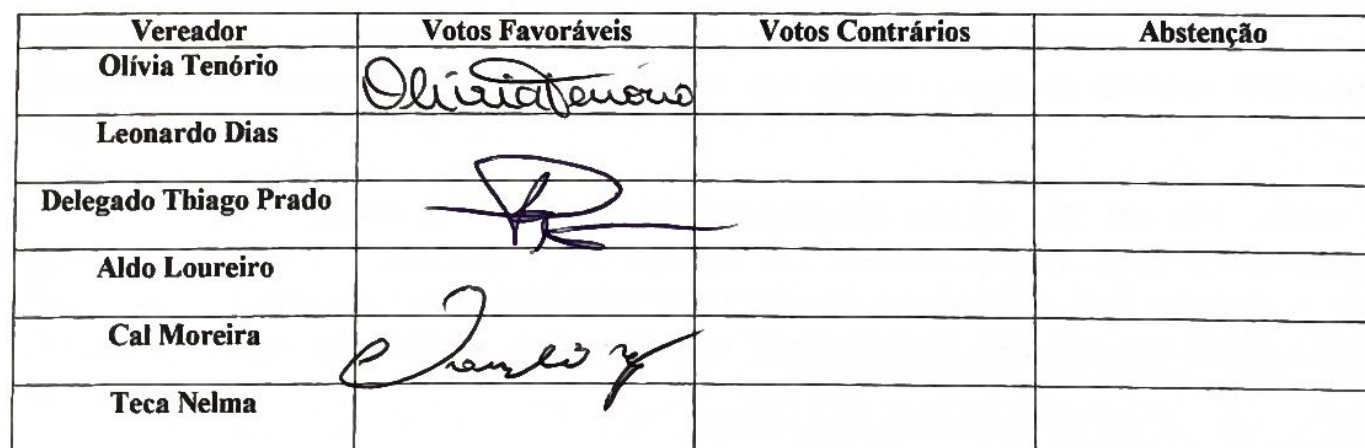 Vereador Votos Favoráveis Votos Contrários Abstenção
Olívia Tenório Olívia Tenório
Leonardo Dias
Delegado Thiago Prado
Aldo Loureiro
Cal Moreira
Teca Nelma